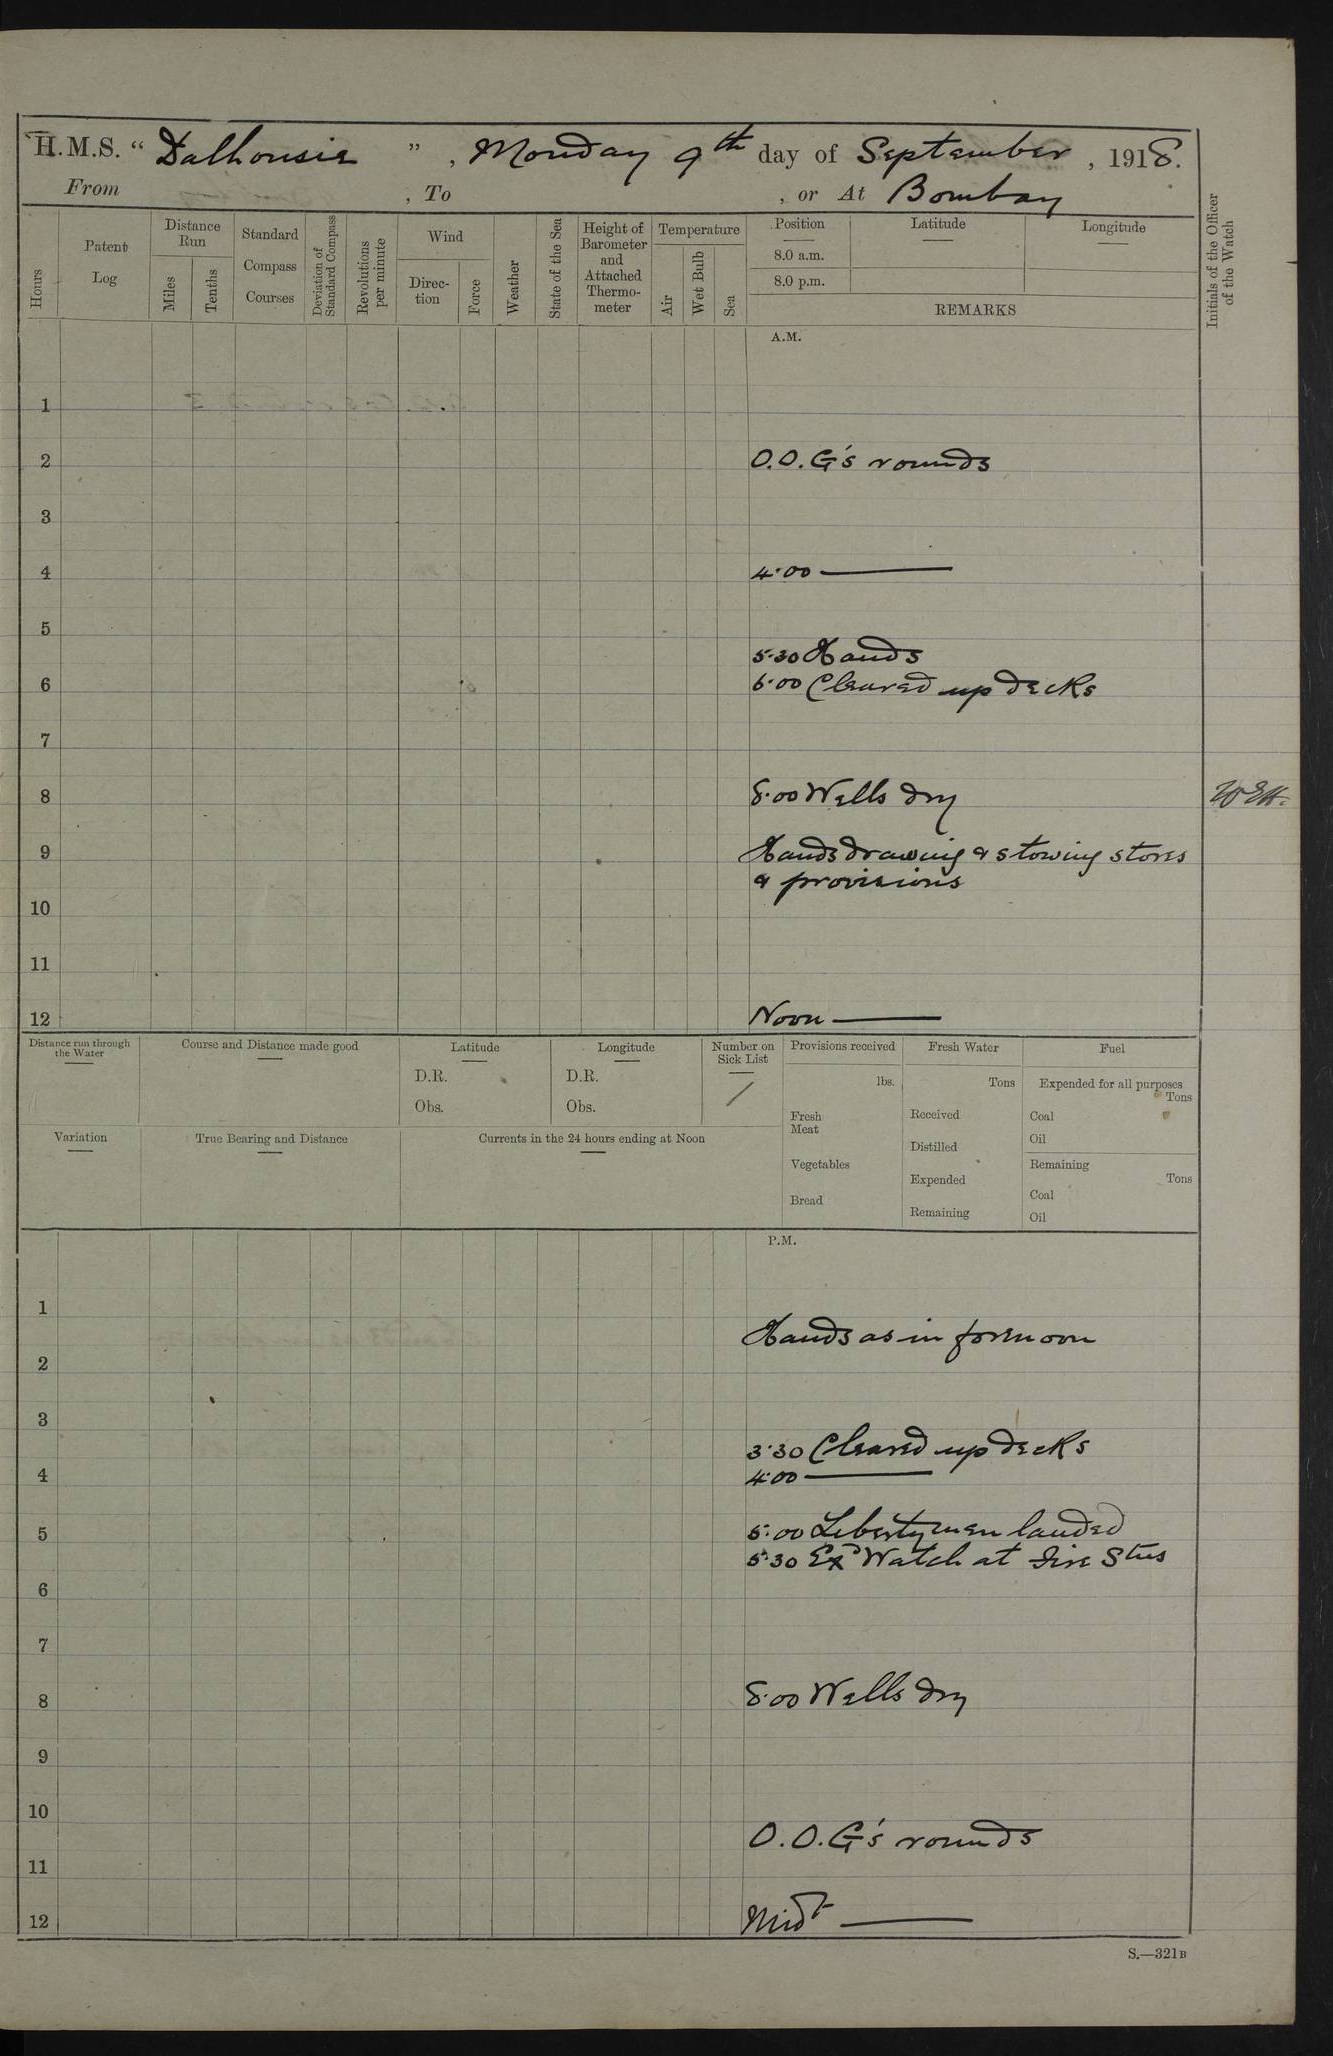 H.M.S. “ Dalhousie ” , Monday 9th day of September , 1918.
From , To , or At Bombay
Hours
Patent Log
Distance Run
Miles
Tenths
Standard Compass Courses
Deviation of Standard Compass
Revolutions per minute
Wind
Direction
Force
Weather
State of the Sea
Height of Barometer and Attached Thermometer
Temperature
Air
Wet Bulb
Sea
Position
8.0 a.m.
8.0 p.m.
Latitude
Longitude
REMARKS
Initials of the Officer of the Watch
A.M.
1
2 O.O.G's rounds
3
4 4.00 ———
5
5.30 Hands
6 6.00 Cleared up decks
7
8 8.00 Wells dry
9 Hands drawing & stowing stores
& provisions
10
11
12 Noon ———
Distance run through the Water
Course and Distance made good
Latitude
D.R.
Obs.
Longitude
D.R.
Obs.
Number on Sick List
/
Provisions received
lbs.
Fresh Meat
Vegetables
Bread
Fresh Water
Tons
Received
Distilled
Expended
Remaining
Fuel
Expended for all purposes
Tons
Coal
Oil
Remaining
Tons
Coal
Oil
Variation
True Bearing and Distance
Currents in the 24 hours ending at Noon
P.M.
1
Hands as in forenoon
2
3
3.30 Cleared up decks
4 4.00 ———
5 5.00 Libertymen landed
5.30 Exd Watch at Fire Stns
6
7
8 8.00 Wells dry
9
10
O.O.G's rounds
11
12 Midt ———
S.—321B